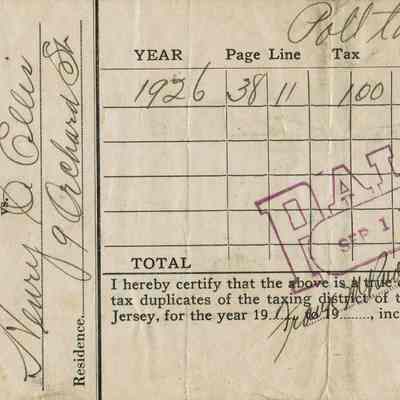 vs. Henry C Ellis
Residence..... 9 Orchard St
Poll ta
YEAR Page Line Tax
1926 38 11 100
PAI
SEP 1
TOTAL
I hereby certify that the above is a true c
tax duplicates of the taxing district of t
Jersey, for the year 19 to 19......., inc